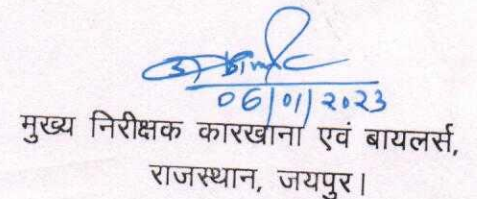 06/01/2023
मुख्य निरीक्षक कारखाना एवं बायलर्स,
राजस्थान, जयपुर।